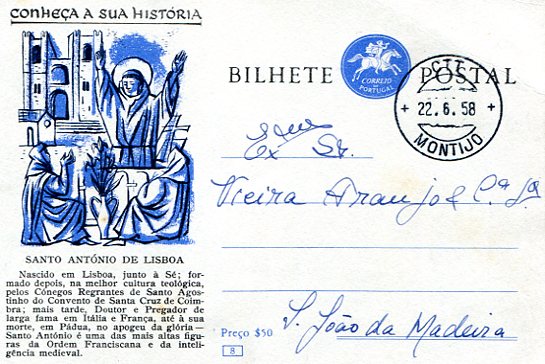 CONHEÇA A SUA HISTÓRIA
BILHETE POSTAL
CORREIO
PORTUGAL
CTT
22.6.58
MONTIJO
Exmo Sr.
Vieira Araujo & Cª Lª
S. João da Madeira
SANTO ANTÓNIO DE LISBOA
Nascido em Lisboa, junto à Sé; for-
mado depois, na melhor cultura teológica,
pelos Cónegos Regrantes de Santo Agos-
tinho do Convento de Santa Cruz de Coim-
bra; mais tarde, Doutor e Pregador de
larga fama em Itália e França, até à sua
morte, em Pádua, no apogeu da glória —
Santo António é uma das mais altas figu-
ras da Ordem Franciscana e da inteli-
gência medieval.
Preço $50
8